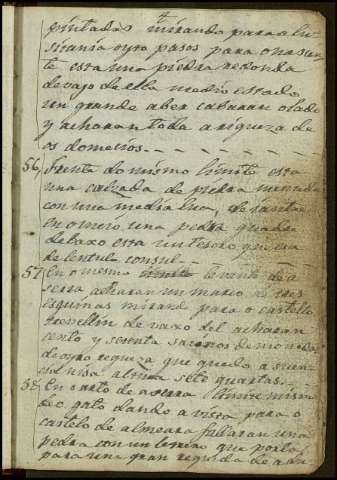 pintadas mirando para a lu
sitania oyto pasos para onasan
te esta una piedra redonda
de vajo de ella medio estado
un grande aber cabaran o lado
y acharan toda a riqueza de
os domecios
56, frenta do mismo limite esta
una calzada de piedra menuda
con una media lua, de
en o mero una pedra quadra
debaxo esta un tesoro que era
de lentulo consul
57, En o mesmo limite levante de a
serra acharan un marco de tres
esquinas mirando para o castello
de vaxo del acharan
cento y setenta
de oyro requiza que quedo a
alnira sete quartas.
58, En o alto de a serra
o gato dando a vista para o
castelo de almeara fallaran una
pedra con un letreiro que
para una gran requeda de